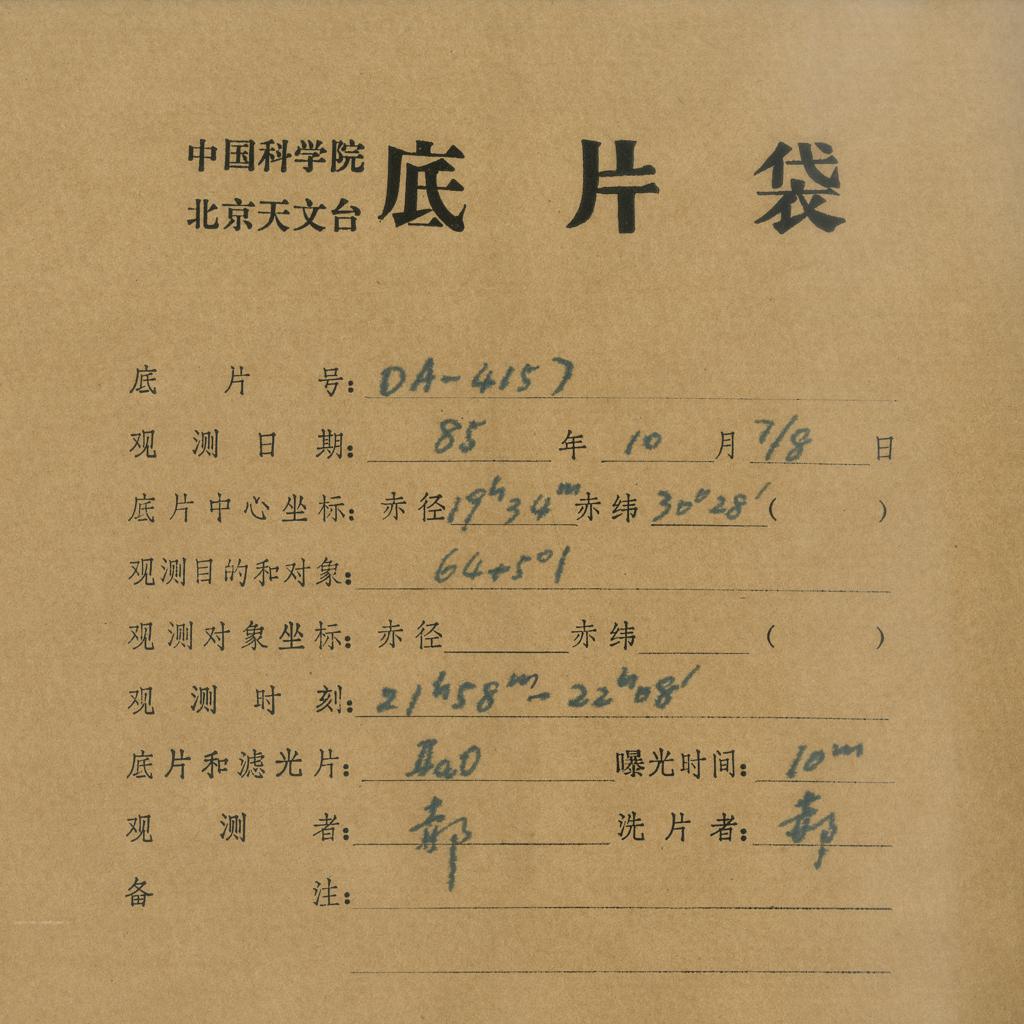 中国科学院
北京天文台 底片袋
底片号: DA-4157
观测日期: 85 年 10 月 7/8 日
底片中心坐标: 赤径 19h34m 赤纬 30°28′ ( )
观测目的和对象: 64+501
观测对象坐标: 赤径 赤纬 ( )
观测时刻: 21h58m-22h08′
底片和滤光片: IIaO 曝光时间: 10m
观测者: 郝 洗片者: 郝
备注: